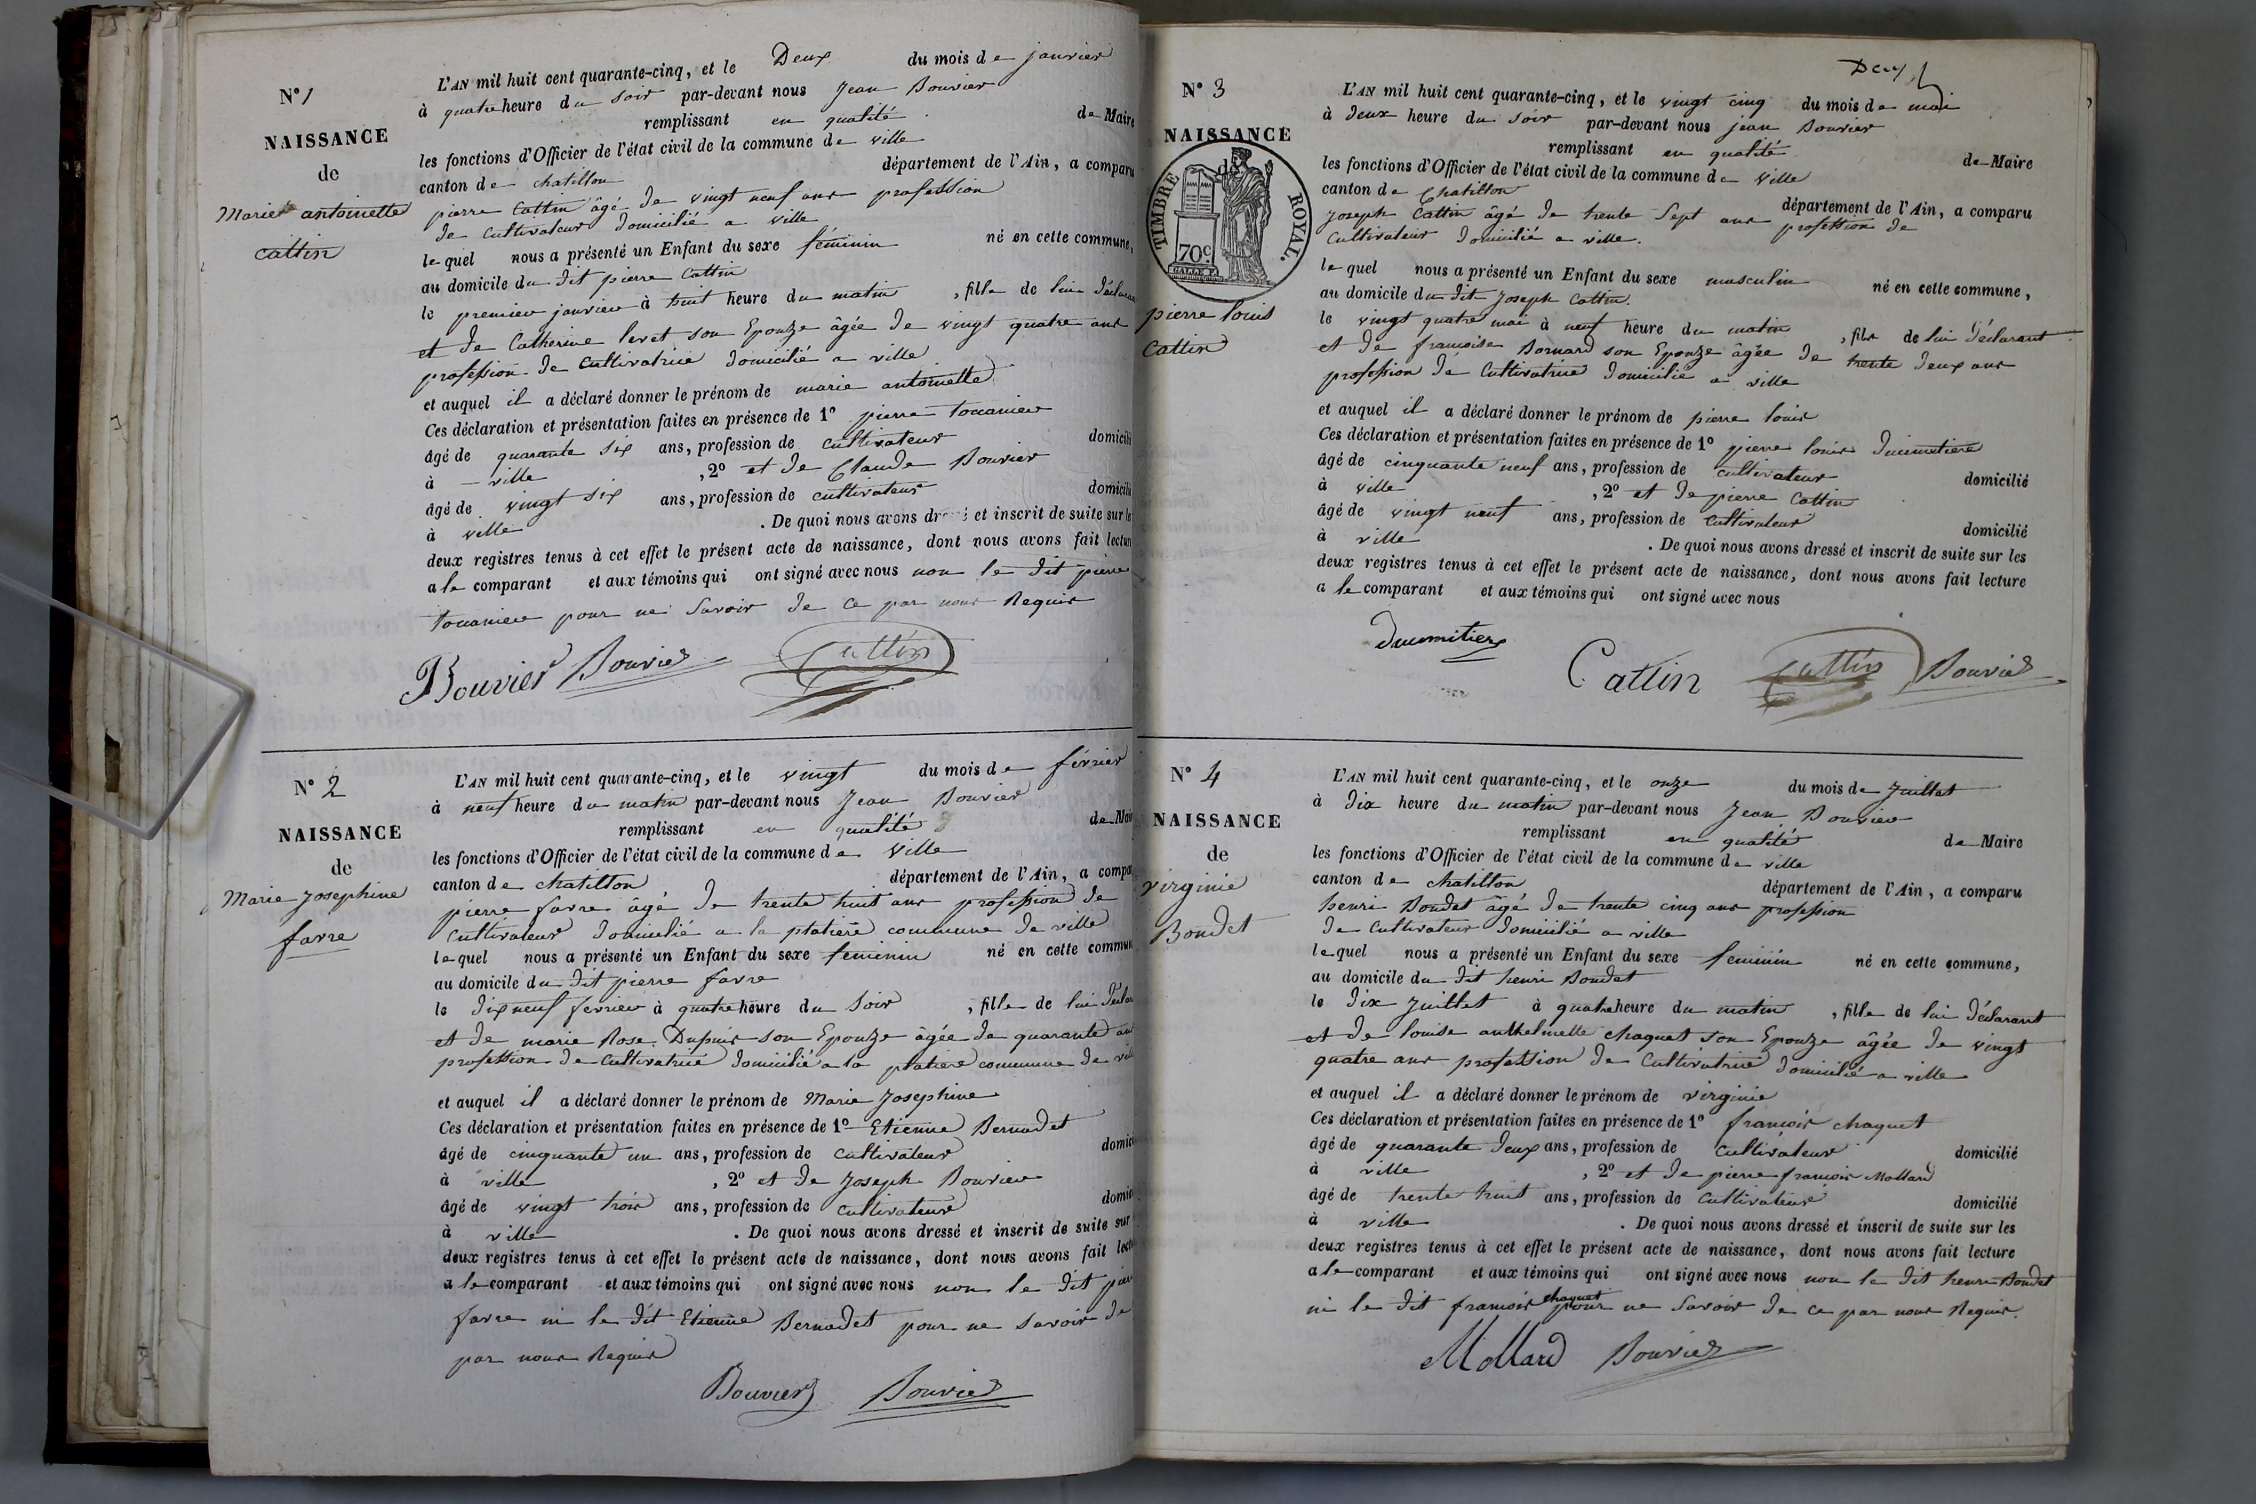 N° 1
NAISSANCE
de
Marie antoinette
cattin
L'AN mil huit cent quarante-cinq, et le Deux du mois de janvier
à quatre heure du soir par-devant nous Jean Bouvier
remplissant en qualité de Maire
les fonctions d'Officier de l'état civil de la commune de ville
canton de chatillon département de l'Ain, a comparu
pierre Cattin âgé de vingt neuf ans profession
de cultivateur domicilié a ville
lequel nous a présenté un Enfant du sexe féminin né en cette commune,
au domicile du dit pierre Cattin
le premier janvier à huit heure du matin, fille de lui déclarant
et de Catherine levet son Epouze âgée de vingt quatre ans
profession de cultivatrice domicilié a ville
et auquel il a déclaré donner le prénom de marie antoinette
Ces déclaration et présentation faites en présence de 1° pierre touanier
âgé de quarante six ans, profession de cultivateur domicili
à ville, 2° et de Claude Bouvier
âgé de vingt six ans, profession de cultivateur domicili
à ville. De quoi nous avons dressé et inscrit de suite sur le
deux registres tenus à cet effet le présent acte de naissance, dont nous avons fait lectur
a le comparant et aux témoins qui ont signé avec nous non le dit pierre
touanier pour ne savoir de ce par nous Requis
Bouvier Bouvier Cattin
N° 2
NAISSANCE
de
Marie Josephine
favre
L'AN mil huit cent quarante-cinq, et le vingt du mois de février
à neuf heure du matin par-devant nous Jean Bouvier
remplissant en qualité de Mair
les fonctions d'Officier de l'état civil de la commune de ville
canton de chatillon département de l'Ain, a compar
pierre favre âgé de trente huit ans profession de
cultivateur domicilié a la platiere commune de ville
lequel nous a présenté un Enfant du sexe feminin né en cette commun
au domicile du dit pierre favre
le dix neuf fevrier à quatre heure du soir, fille de lui déclar
et de marie Rose Dupuis son Epouze âgée de quarante an
profession de Cultivatrice domicilié a la platiere commune de ville
et auquel il a déclaré donner le prénom de Marie Josephine
Ces déclaration et présentation faites en présence de 1° Etienne Bernadet
âgé de cinquante un ans, profession de cultivateur domici
à ville, 2° et de Joseph Bouvier
âgé de vingt trois ans, profession de cultivateur domici
à ville. De quoi nous avons dressé et inscrit de suite sur
deux registres tenus à cet effet le présent acte de naissance, dont nous avons fait lectu
a le comparant et aux témoins qui ont signé avec nous non le dit pier
favre ni le dit Etienne Bernadet pour ne savoir de
par nous Requis
Bouvier Bouvier
Deux
N° 3
NAISSANCE
de
TIMBRE ROYAL.
70c
pierre louis
Cattin
L'AN mil huit cent quarante-cinq, et le vingt cinq du mois de mai
à deux heure du soir par-devant nous jean Bouvier
remplissant en qualité de Maire
les fonctions d'Officier de l'état civil de la commune de Ville
canton de Chatillon département de l'Ain, a comparu
Joseph Cattin âgé de trente Sept ans profession de
cultivateur domicilié a ville.
lequel nous a présenté un Enfant du sexe musculin né en cette commune,
au domicile du dit Joseph Cattin.
le vingt quatre mai à neuf heure du matin, fils de lui déclarant
et de francoise Bornard son Epouze âgée de trente deux ans
profession de Cultivatrice domicilié a ville
et auquel il a déclaré donner le prénom de pierre louis
Ces déclaration et présentation faites en présence de 1° pierre louis Ducimetiere
âgé de cinquante neuf ans, profession de cultivateur domicilié
à ville, 2° et de pierre Cattin
âgé de vingt neuf ans, profession de Cultivateur domicilié
à ville. De quoi nous avons dressé et inscrit de suite sur les
deux registres tenus à cet effet le présent acte de naissance, dont nous avons fait lecture
a le comparant et aux témoins qui ont signé avec nous
Cattin Cattin Bouvier
N° 4
NAISSANCE
de
virginie
Boudet
L'AN mil huit cent quarante-cinq, et le onze du mois de Juillet
à dix heure du matin par-devant nous Jean Bouvier
remplissant en qualité de Maire
les fonctions d'Officier de l'état civil de la commune de ville
canton de chatillon département de l'Ain, a comparu
henri Boudet âgé de trente cinq ans profession
de Cultivateur domicilié a ville
lequel nous a présenté un Enfant du sexe feminin né en cette commune,
au domicile du dit henri Boudet
le dix Juillet à quatre heure du matin, fille de lui déclarant
et de louise anthelmette chaquet son Epouze âgée de vingt
quatre ans profession de Cultivatrice domicilié a ville
et auquel il a déclaré donner le prénom de virginie
Ces déclaration et présentation faites en présence de 1° francois chaquet
âgé de quarante deux ans, profession de Cultivateur domicilié
à ville, 2° et de pierre francois Mollard
âgé de trente huit ans, profession de Cultivateur domicilié
à ville. De quoi nous avons dressé et inscrit de suite sur les
deux registres tenus à cet effet le présent acte de naissance, dont nous avons fait lecture
a le comparant et aux témoins qui ont signé avec nous non le dit henri Boudet
ni le dit francois chaquet pour ne savoir de ce par nous Requis.
Mollard Bouvier